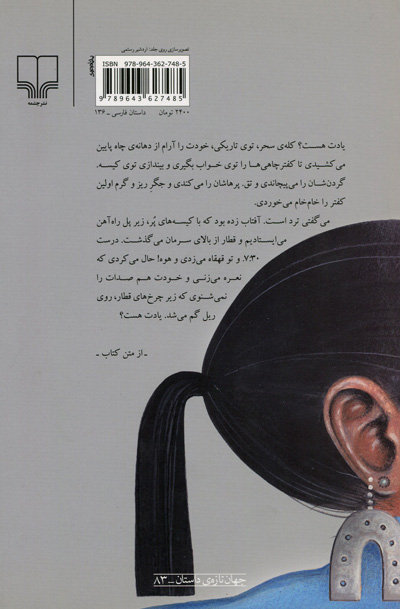 تصویرسازی روی جلد: اردشیر رستمی
ISBN 978-964-362-748-5
9 789643 627485
داستان فارسی ـ ۱۳۶
۲۴۰۰ تومان
نشرچشمه
یادت هست؟ کله‌ی سحر، توی تاریکی، خودت را آرام از دهانه‌ی چاه پایین
می‌کشیدی تا کفترچاهی‌ها را توی خواب بگیری و بیندازی توی کیسه.
گردن‌شان را می‌پیچاندی و تق. پرهاشان را می‌کندی و جگر ریز و گرم اولین
کفتر را خام‌خام می‌خوردی.
می‌گفتی ترد است. آفتاب زده بود که با کیسه‌های پُر، زیر پل راه‌آهن
می‌ایستادیم و قطار از بالای سرمان می‌گذشت. درست
۷:۳۰. و تو قهقاه می‌زدی و هوه! حال می‌کردی که
نعره می‌زنی و خودت هم صدات را
نمی‌شنوی که زیر چرخ‌های قطار، روی
ریل گم می‌شد. یادت هست؟
ـ از متن کتاب ـ
جهان تازه‌ی داستان ـ ۸۳